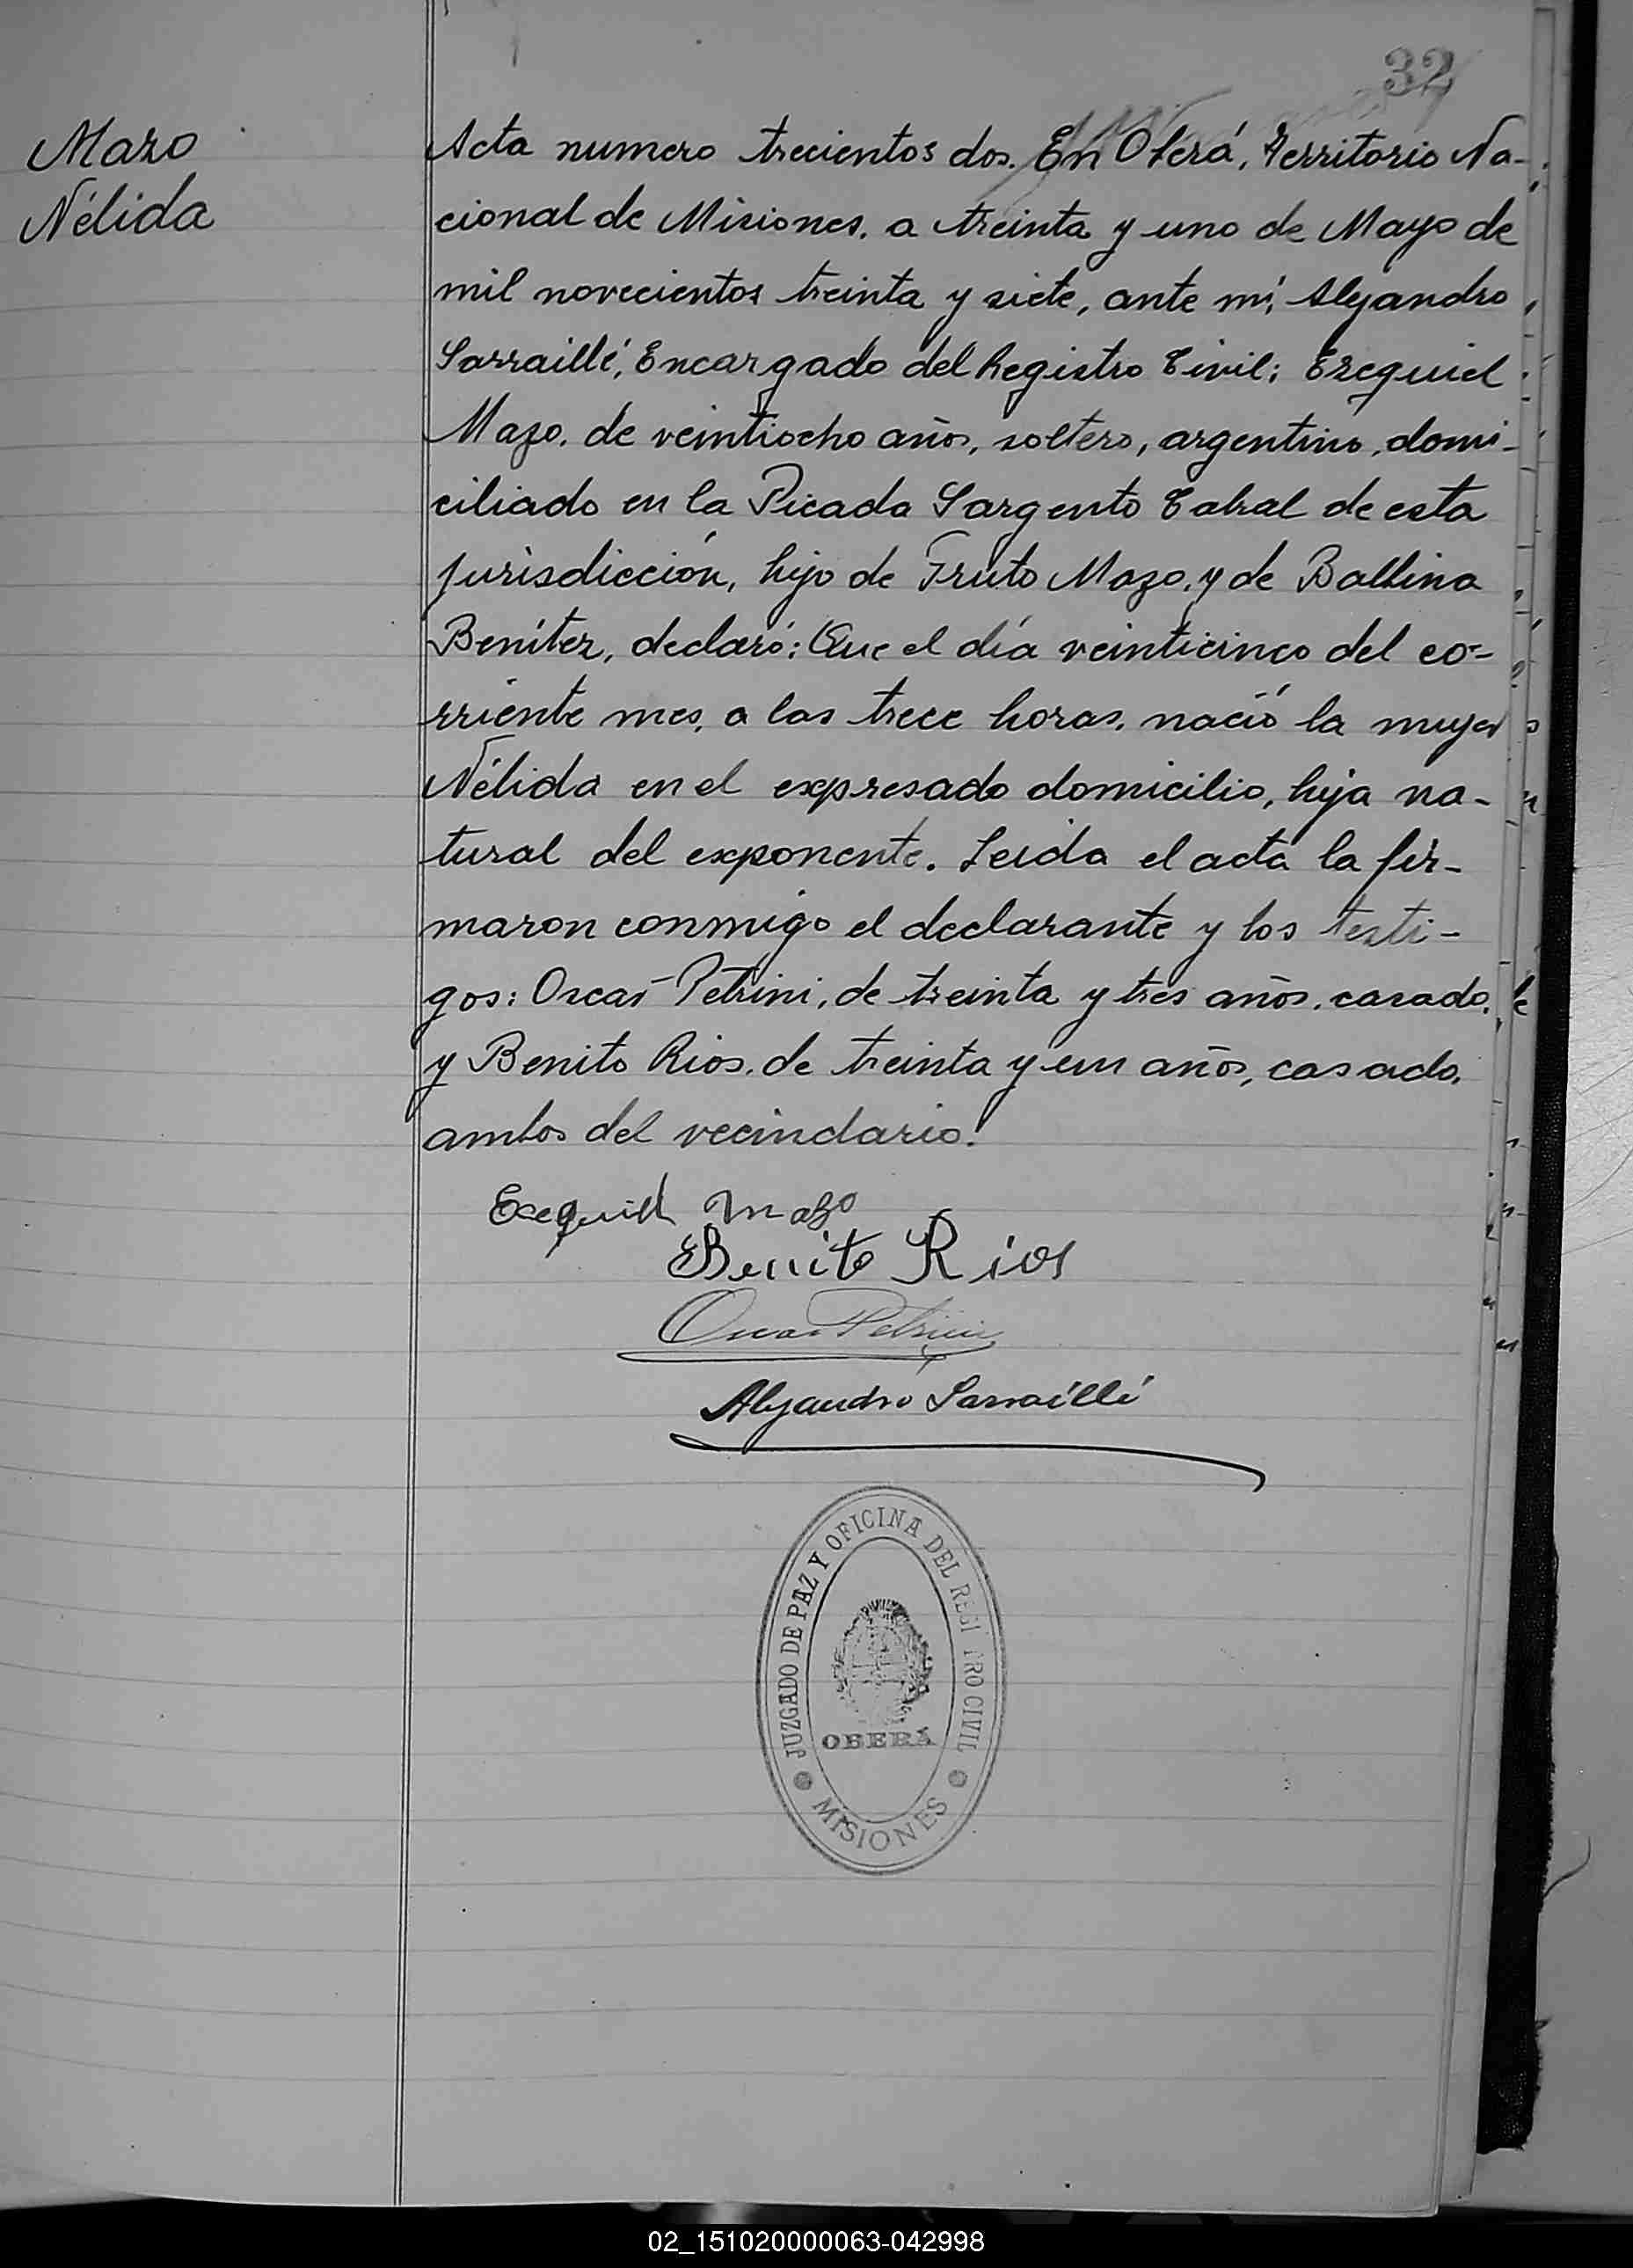 32
Mazo
Nélida
Acta numero trecientos dos. En Oberá, Territorio Na-
cional de Misiones, a treinta y uno de Mayo de
mil novecientos treinta y siete, ante mí, Alejandro
Sarraillé, Encargado del Registro Civil; Ezequiel
Mazo, de veintiocho años, soltero, argentino, domi-
ciliado en la Picada Sargento Cabral de esta
jurisdicción, hijo de Fruto Mazo, y de Balbina
Benítez, declaró: Que el día veinticinco del co-
rriente mes, a las trece horas, nació la mujer
Nélida en el expresado domicilio, hija na-
tural del exponente. Leida el acta la fir-
maron conmigo el declarante y los testi-
gos: Oscar Petrini, de treinta y tres años, casado,
y Benito Rios, de treinta y un años, casado,
ambos del vecindario.
Esequiel Mazo
Benito Rios
Oscar Petrini
Alejandro Sarraillé
JUZGADO DE PAZ Y OFICINA DEL REGISTRO CIVIL
OBERÁ
MISIONES
02_151020000063-042998